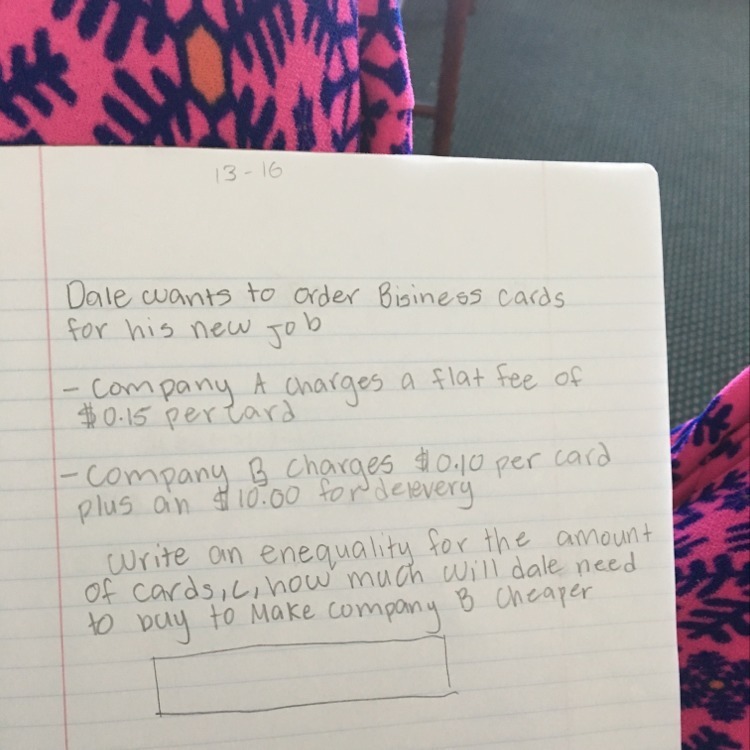 13-16
Dale wants to order Bisiness cards
for his new job
- Company A charges a flat fee of
$0.15 per card
- Company B charges $0.10 per card
plus an $10.00 for delevery
Write an enequality for the amount
of cards, c, how much will dale need
to buy to Make company B cheaper